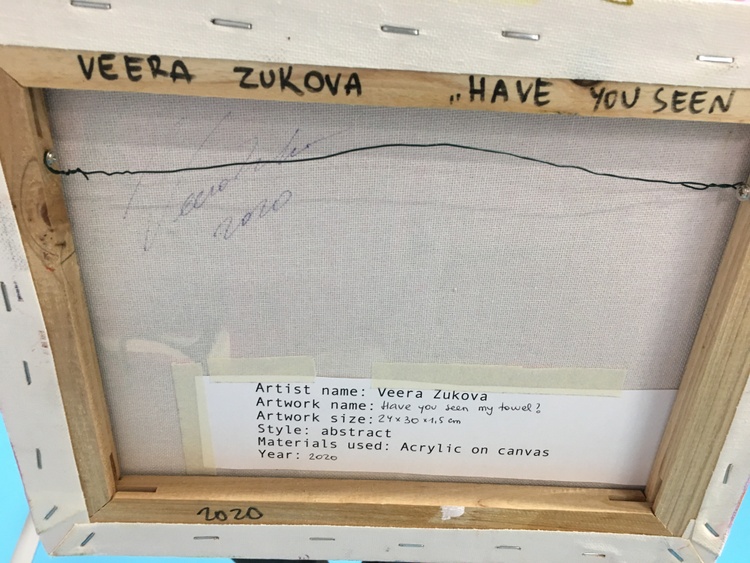 VEERA ZUKOVA „HAVE YOU SEEN
Veera Zukova
2020
Artist name: Veera Zukova
Artwork name: Have you seen my towel?
Artwork size: 24x30x1,5 cm
Style: abstract
Materials used: Acrylic on canvas
Year: 2020
2020